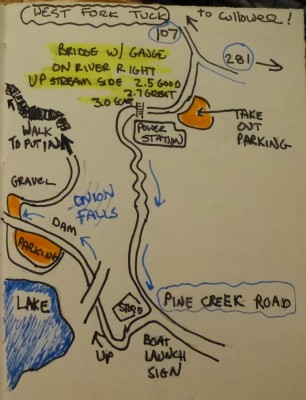 WEST FORK TUCK
to CULLOWEE!
107
281
BRIDGE W/ GAUGE
ON RIVER RIGHT
UP STREAM SIDE 2.5 GOOD
2.7 GREAT
POWER
STATION
TAKE
OUT
PARKING
WALK
TO PUT IN
GRAVEL
ONION
FALLS
DAM
PARKING
LAKE
STORE
PINE CREEK ROAD
UP
BOAT
LAUNCH
SIGN